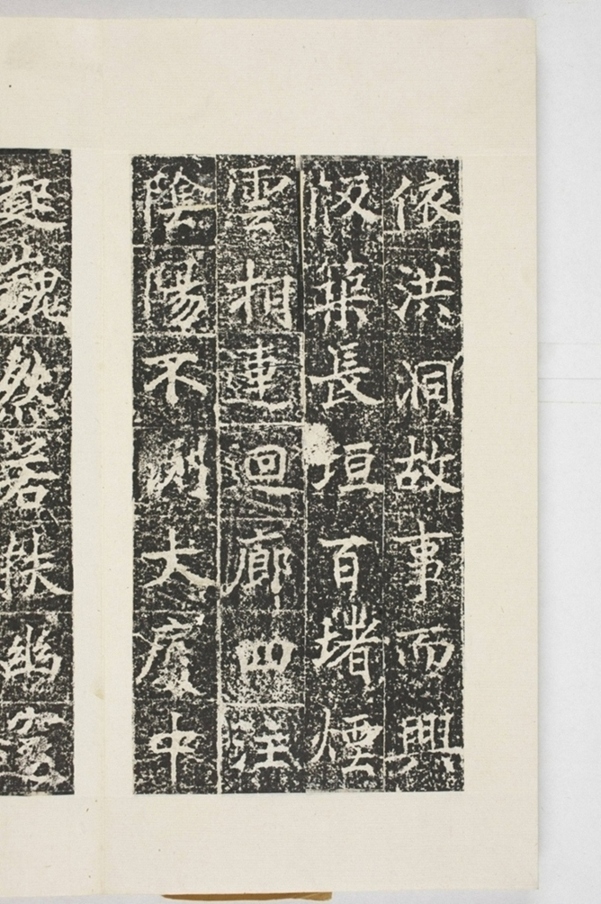 依洪洞故事而興
版築長垣百堵煙
雲相連迴廊四注
陰陽不測大廈中
起巍然若